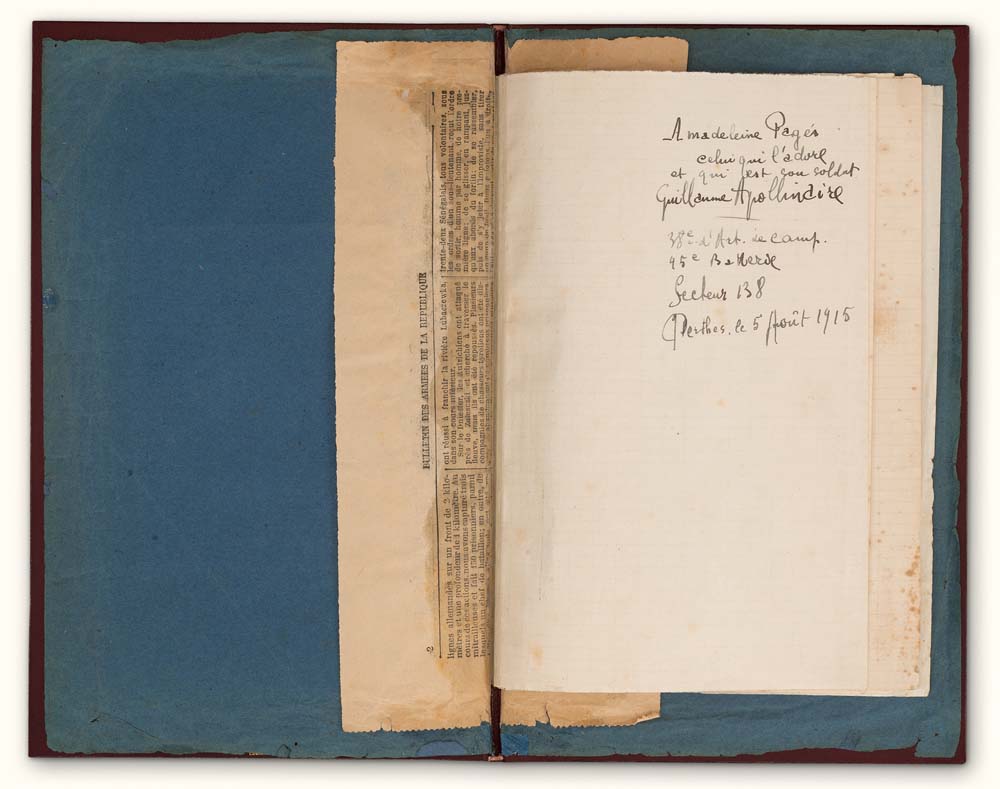 2
BULLETIN DES ARMÉES DE LA RÉPUBLIQUE
lignes allemandes sur un front de 2 kilo-
mètres et une profondeur de 1 kilomètre. Au
cours de ces actions, nous avons capturé trois
mitrailleuses et fait 150 prisonniers, parmi
lesquels un chef de bataillon; en outre, de
ont réussi à franchir la rivière Lubaczewka,
dans son cours inférieur.
Sur le Dniester, les Autrichiens ont attaqué
près de et cherché à traverser le
fleuve, mais ils ont été repoussés. Plusieurs
compagnies de chasseurs tyroliens ont été
trente-deux Sénégalais, tous volontaires, sous
les ordres d'un sous-lieutenant, reçut l'ordre
de sortir, homme par homme, de notre pre-
mière ligne; de se glisser, en rampant, jus-
qu'aux abords du fortin; de se rassembler,
puis de s'y jeter à l'improviste, sans tirer
A madeleine Pagès
celui qui l'adore
et qui est son soldat
Guillaume Apollinaire
38e d'Art. de camp.
45e Batterie
Secteur 138
Perthes, le 5 Août 1915